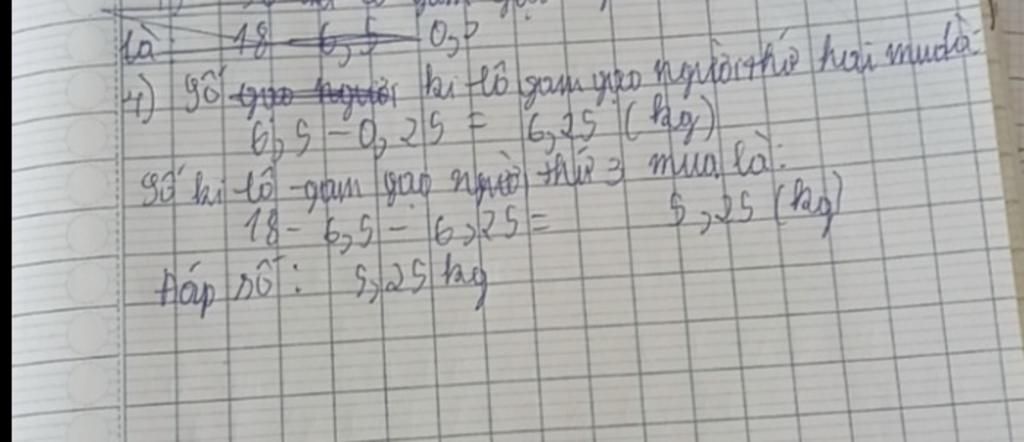 là: 18 - 6,5 - 0,2
4) Số ki-lô gam gạo người thứ hai mua là:
6,5 - 0,25 = 6,25 (kg)
Số ki-lô-gam gạo người thứ 3 mua là:
18 - 6,5 - 6,25 = 5,25 (kg)
Đáp số: 5,25 kg